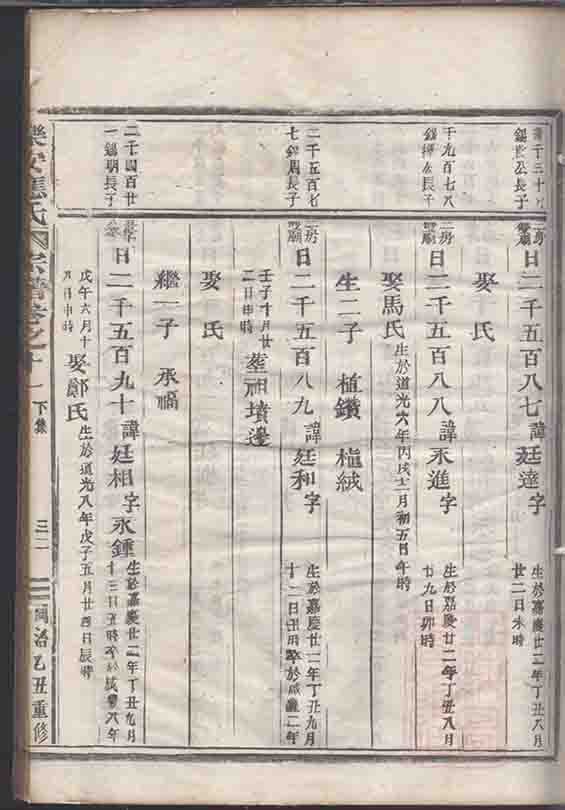 千三十
錫 公長子
二房 雙廟 日二千五百八七 諱廷達字 生於嘉慶廿二年丁丑八月
廿二日未時
娶 氏
千九百七八
錫 公長子
二房 雙廟 日二千五百八八 諱永進字 生於嘉慶廿二年丁丑八月
廿九日卯時
娶馬氏 生於道光六年丙戌十二月初五日午時
生二子 植鑽 植絨
二千五百七
七錫周長子
二房 雙廟 日二千五百八九 諱廷和字 生於嘉慶廿二年丁丑九月
十二日丑時卒於咸豐二年
壬子十月廿
二日申時 塟祖墳邊
娶 氏
繼一子 承福
二千四百廿
一錫明長子
日二千五百九十 諱廷相字永鍾 生於嘉慶廿二年丁丑九月
十三日丑時卒於咸豐八年
戊午六月十
八日申時 娶鄭氏 生於道光八年戊子五月廿四日辰時
樂安 氏宗譜卷之十一 下集 三二 同治乙丑重修